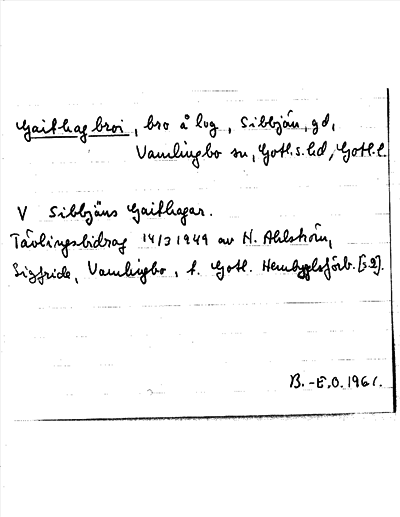 Gaithagbroi, bro å lvg, Sibbjän, gd,
Vamlingbo sn, Gotl.s.hd, Gotl.l.
V Sibbjäns Gaithagar.
Tävlingsbidrag 14/3 1949 av H. Ahlström,
Sigfride, Vamlingbo, t. Gotl. Hembygdsförb. [s.2].
B.-E.O. 1961.